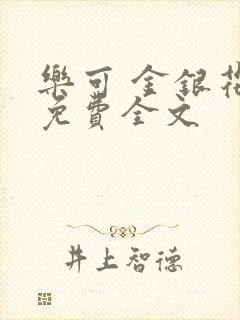 樂可 金銀花
免費全文
井上智德